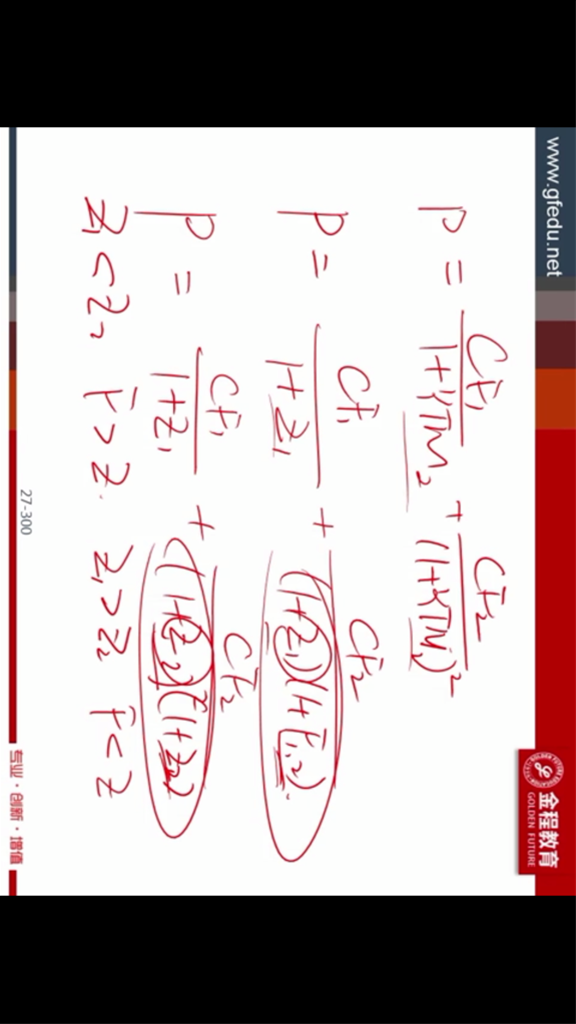 www.gfedu.net
金程教育
GOLDEN FUTURE
P = CF₁/(1+YTM₂) + CF₂/(1+YTM₂)²
P = CF₁/(1+Z₁) + CF₂/((1+Z₁)(1+F₁,₂))
P = CF₁/(1+Z₁) + CF₂/((1+Z₂)(1+Z₂))
Z₁ < Z₂ F > Z. Z₁ > Z₂ F < Z
27-300
专业·创新·增值